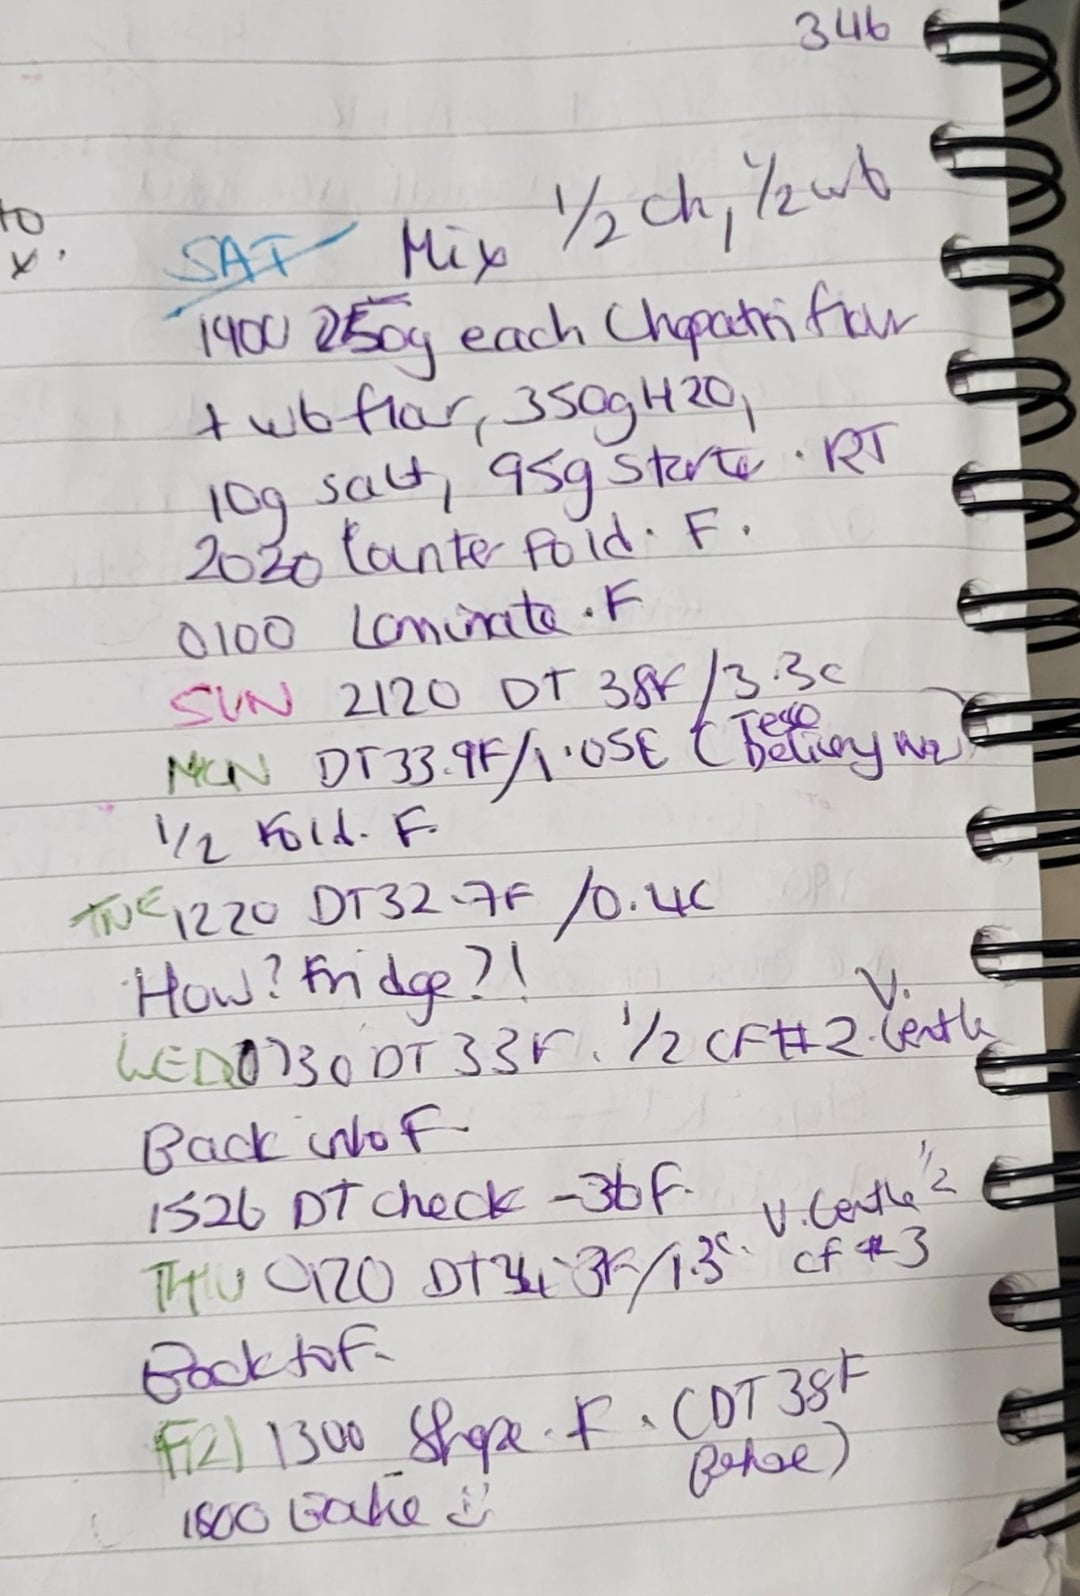 346
to
x.
SAT Mix 1/2 ch, 1/2 wb
1400 250g each Chapatti flour
+ wb flour, 350g H20,
10g salt, 95g starter. RT
2020 Counter Fold. F.
0100 Laminate. F
SUN 2120 DT 38F/3.3c
MON DT33.9F/1.05C (Tesco Delivery
1/2 Fold. F.
TUE 1220 DT32.7F /0.4C
How? Fridge?!
WED 0730 DT 33F. 1/2 CF#2. V. Gentle
Back into F
1526 DT check - 36F.
THU 0120 DT34.3F/1.3c. V. Gentle 1/2
cf #3
Back to F.
FRI 1300 Shape. F. (DT 38F
Before)
1800 Bake